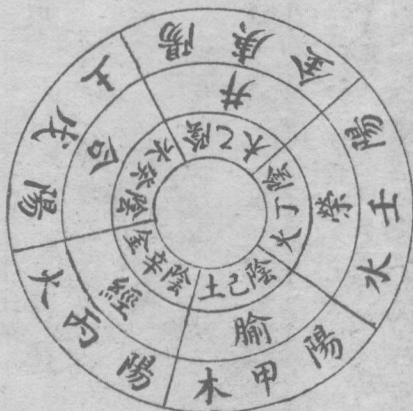 陽庚金
陽壬水
陽甲木
陽丙火
陽戊土
井
榮
腧
經
合
陰乙木
陰丁火
陰己土
陰辛金
陰癸水